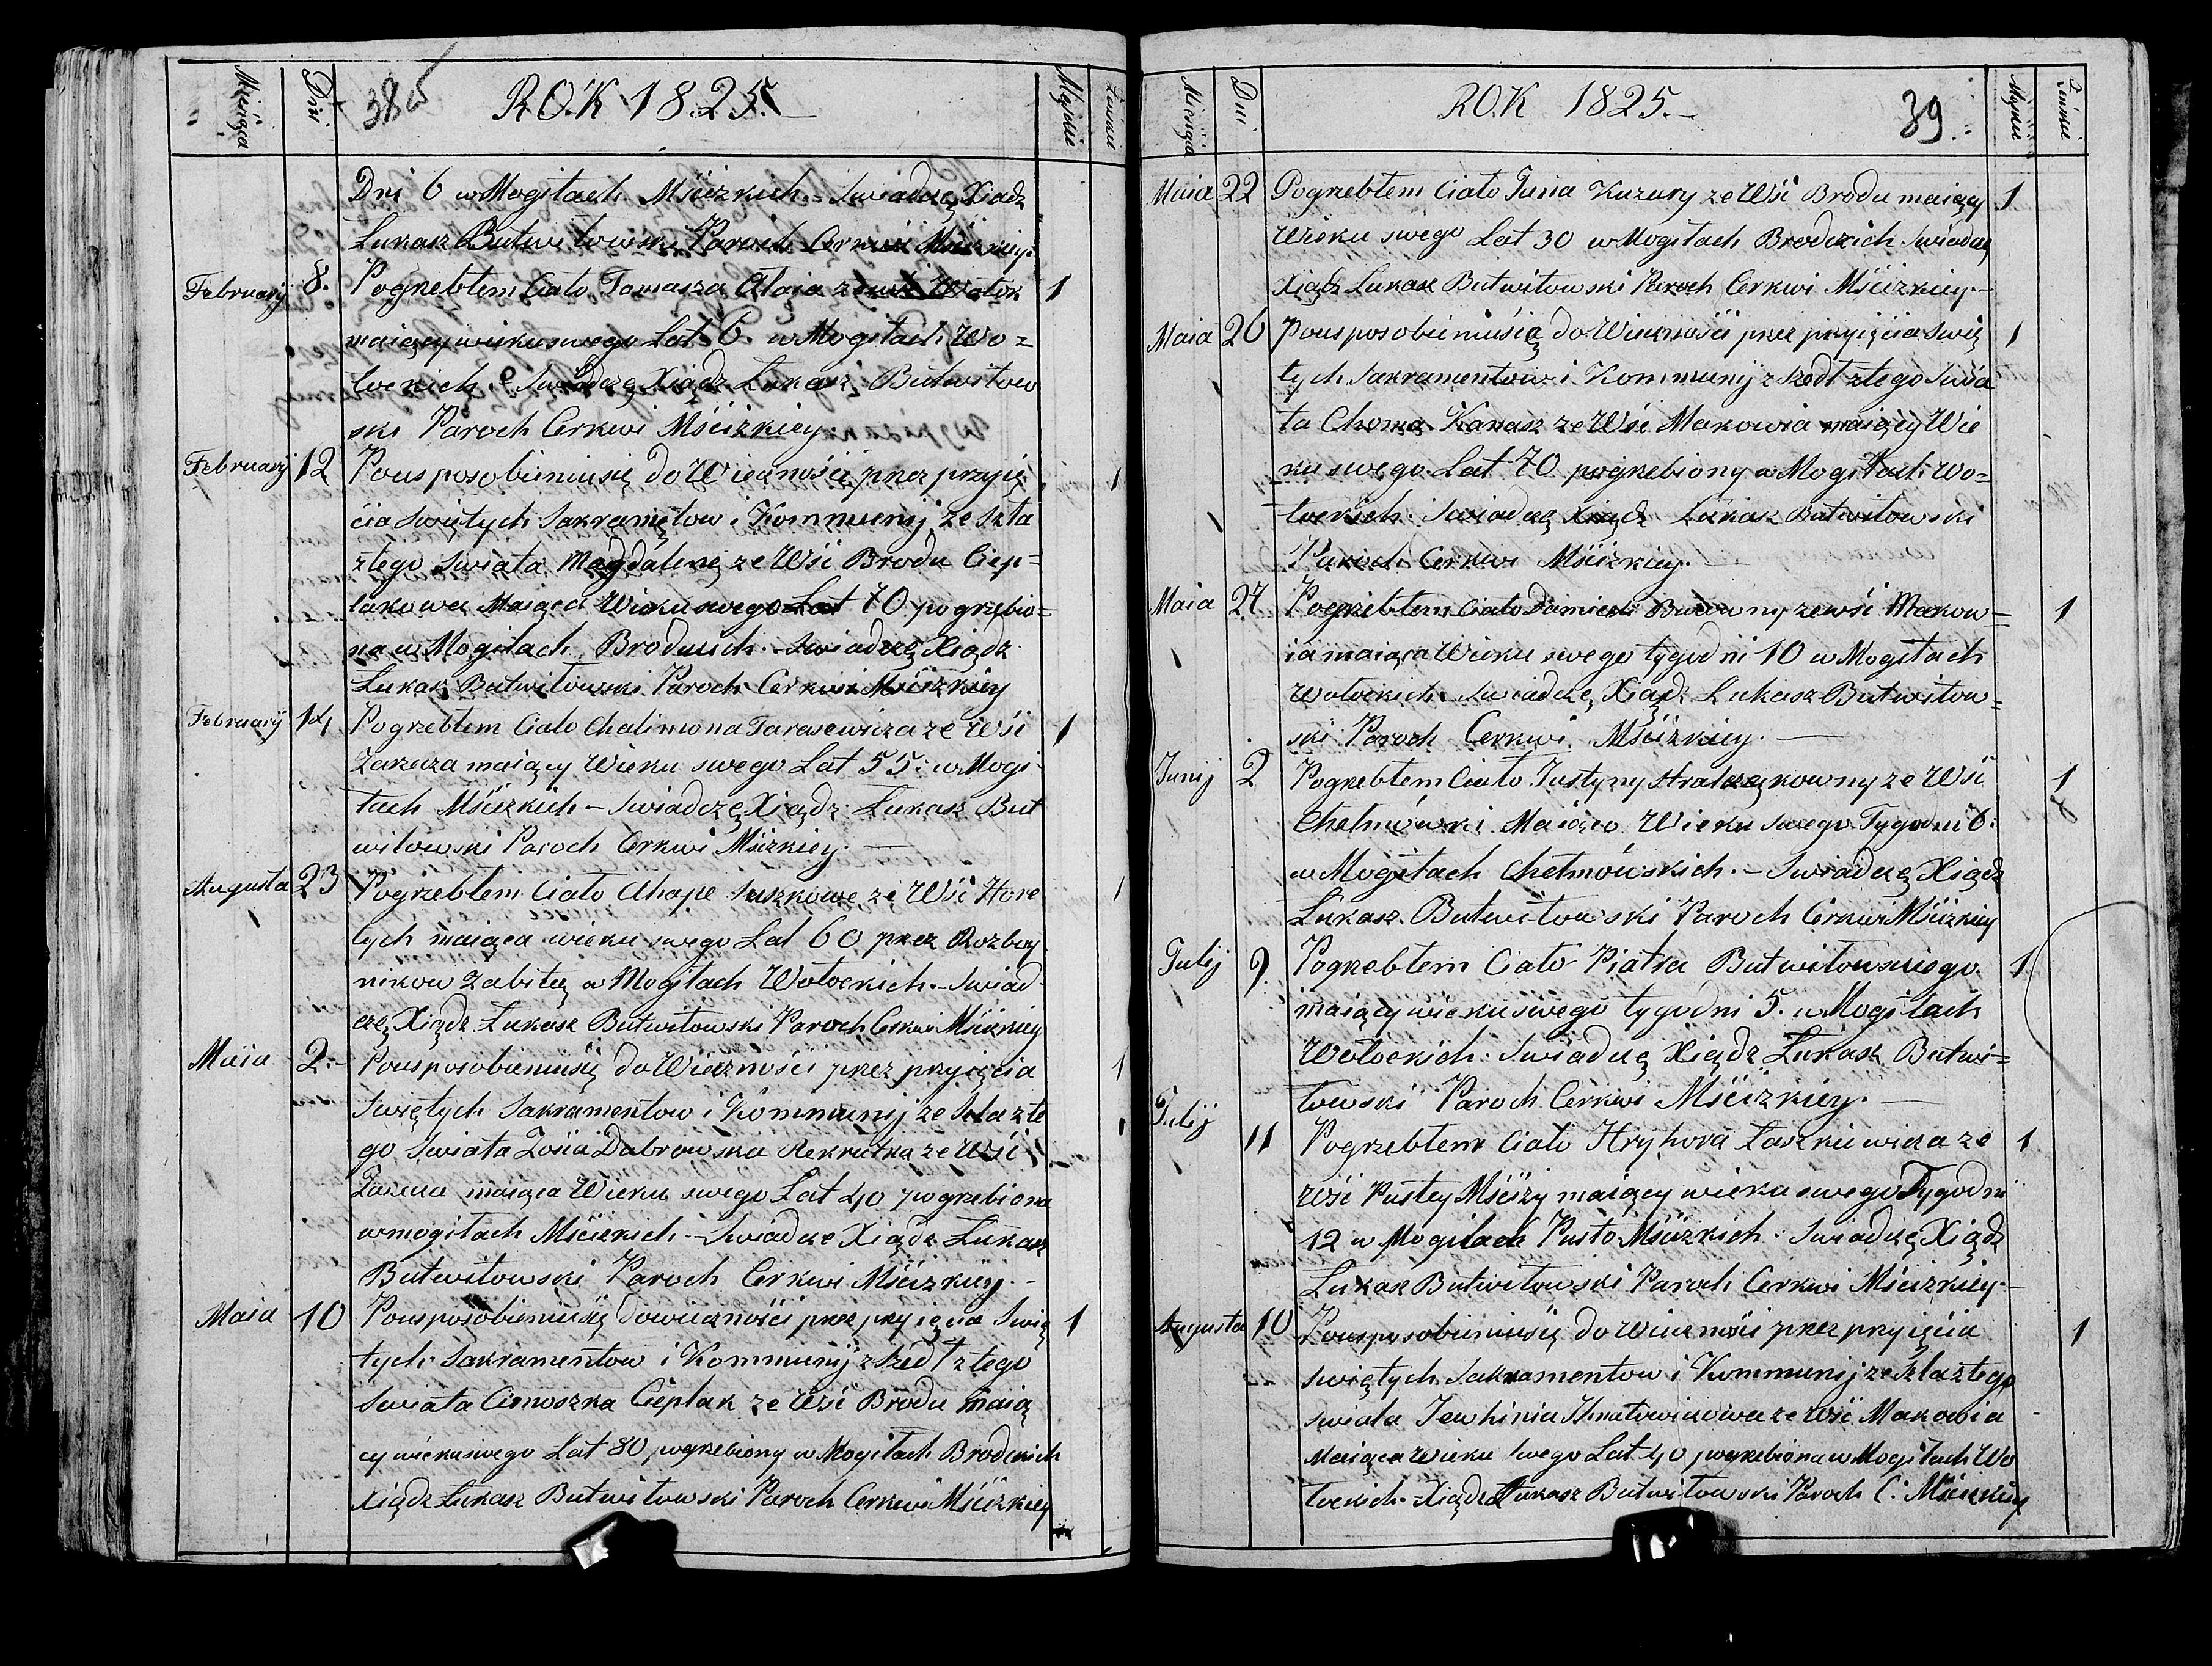 Miesiąca Dni 38δ ROK 1825. Męskie Zeńskie
Dni 6 w Mogiłach Mścizkich. Swiadczę Xiądz
Łukasz Butwiłowski Paroch Cerkwi Mścizkiey.
February 8. Pogrzebłem Ciało Tomasza 1
maiący wieku swego Lat 6. w Mogiłach Wo=
łockich. Swiadczę Xiądz Łukasz Butwiłow
ski Paroch Cerkwi Mścizkiey.
February 12 Pousposobieniusię do Wiecności przez przyię 1
cia Swiętych Sakramętow i Kommunij Ze szła
ztego Swiata Magdalenę ze Wśi Brodu Ciep=
lakowa Maiąca Wieku swego Lat 70 pogrzebio=
na w Mogiłach Brodzkich. Swiadczę Xiądz
Łukasz Butwiłowski Paroch Cerkwi Mścizkiey
February 14 Pogrzebłem Ciało Chalimona Tarasewicza ze Wśi 1
Zarzecza maiący Wieku swego Lat 55: w Mogi
łach Mścizkich – Swiadczę Xiądz Łukasz But
wiłowski Paroch Cerkwi Mścizkiey. —
Augusta 23 Pogrzebłem Ciało Ahape Suszkowę ze Wśi Hore 1
łych maiąca wieku swego Lat 60 przez Rozboy
nikow zabitą w Mogiłach Wołockich. – Swiad
czę Xiądz Łukasz Butwiłowski Paroch Cerkwi Mścizkiey
Maia 2. – Pousposobieniusię do Wieczności przez przyięcia 1
Swiętych Sakramentow i Kommunij ze szła zte
go Swiata Zosia Dabrowska Rekrutka ze Wśi
maiąca Wieku swego Lat 40 pogrzebiona
w mogiłach Mścizkich. – Swiadcze Xiądz Łukasz
Butwiłowski Paroch Cerkwi Mścizkiey. –
Maia 10 Pousposobieniusię dowieczności przez przyięcia Swię 1
tych Sakramentow i Kommunij zszedł ztego
Swiata Cimoszka Cieplak ze Wśi Brodu maią
cy wieku swego Lat 80 pogrzebiony w Mogiłach Brodzkich
Xiądz Łukasz Butwiłowski Paroch Cerkwi Mścizkiey
Miesiąca Dni. ROK 1825. – 39 Męskie Zeńskie
Maia 22 Pogrzebłem Ciało Juria Kuzury ze Wśi Brodu maiący 1
Wieku swego Lat 30 w Mogiłach Brodzkich. Swiadczę
Xiądz Łukasz Butwiłowski Paroch Cerkwi Mścizkiey. –
Maia 26 Pousposobieniusią do Wieczności przez przyięcia Swię 1
tych Sakramentow i Kommunij zszedł ztego Swia
ta Choma Kanasz ze Wśi Makowia maiący Wie
ku swego Lat 70 pogrzebiony w Mogiłach Wo=
łockich. Swiadczę Xiądz Łukasz Butwiłowski
Paroch Cerkwi Mścizkiey.
Maia 27 Pogrzebłem Ciało zewśi Makow= 1
ia maiąca Wieku swego tygodni 10 w Mogiłach
Wołockich. Swiadczę Xiądz Łukasz Butwiłow=
ski Paroch Cerkwi Mścizkiey. —
Junij 2 Pogrzebłem Ciało Justyny ze Wśi 1
Chełmówki Maiąca Wieku swego Tygodni 6:
w Mogiłach Chełmówskich. – Swiadczę Xiądz
Łukasz Butwiłowski Paroch Cerkwi Mścizkiey
Julij 9. Pogrzebłem Ciało Piatra Butwiłowskiego 1
maiący wieku swego tygodni 5. w Mogiłach
Wołockich. Swiadczę Xiądz Łukasz Butwi=
łowski Paroch Cerkwi Mścizkiey. —
Julij 11 Pogrzebłem Ciało Hryhora Łaszkiewicza ze 1
Wśi Pustey Mściży maiący wieku swego Tygodni
12 w Mogiłach Pusto Mścizkich. Swiadczę Xiądz
Łukasz Butwiłowski Paroch Cerkwi Mścizkiey. –
Augusta 10 Pousposobieniusię do Wieczności przez przyięcia 1
Swiętych Sakramentow i Kommunij ze szła ztego
Swiata Jewhinia Hnatowiczowa ze Wśi Makowia
Maiąca Wieku swego Lat 40 pogrzebiona w Mogiłach Wo
łockich. Xiądz Łukasz Butwiłowski Paroch C: Mścizkiey